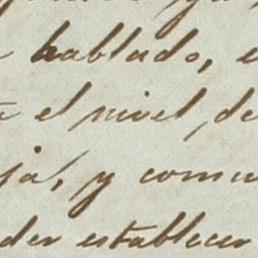 hablado,
el nivel de
ja, y comu
der establecer